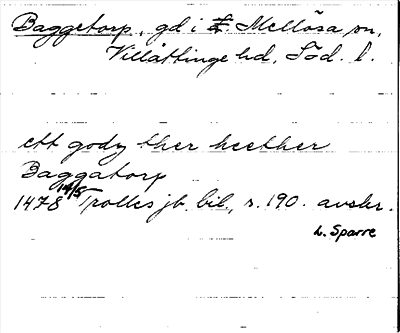 Baggetorp, gd i St. Mellösa sn,
Villåttinge hd, Söd. l.
ett godz ther heether
Baggatorp
1478 14/5 Trolles jb. bil., s. 190. avskr.
L. Sparre